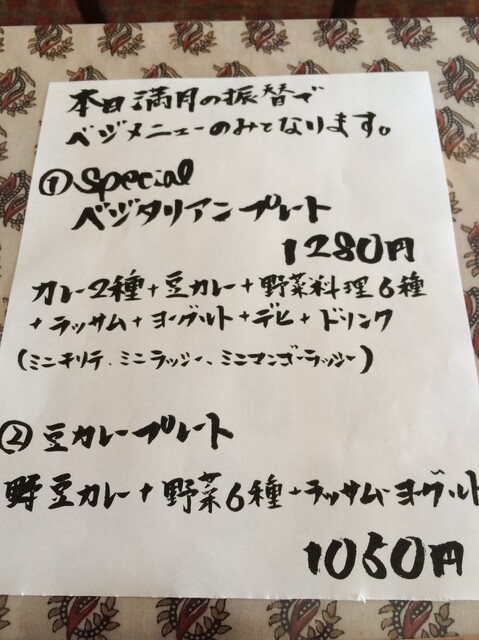 本日満月の振替で
ベジメニューのみとなります。
①Special
ベジタリアンプレート
1280円
カレー2種+豆カレー+野菜料理6種
+ラッサム+ヨーグルト+デヒ+ドリンク
(ミニキリテ、ミニラッシー、ミニマンゴーラッシー)
②豆カレープレート
豆カレー+野菜6種+ラッサム・ヨーグルト
1050円